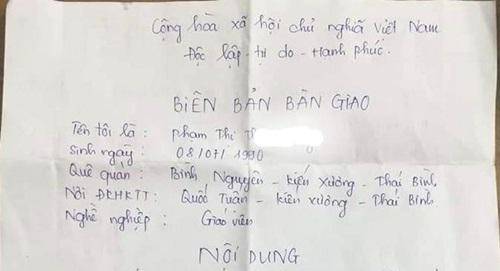 Cộng hòa xã hội chủ nghĩa Việt Nam
Độc lập - tự do - Hạnh phúc.
BIÊN BẢN BÀN GIAO
Tên tôi là : Phạm Thị
Sinh ngày : 08/07/1990
Quê quán : Bình Nguyên - Kiến Xương - Thái Bình
Nơi ĐKHKTT : Quốc Tuấn - Kiến Xương - Thái Bình
Nghề nghiệp : Giáo viên
NỘI DUNG